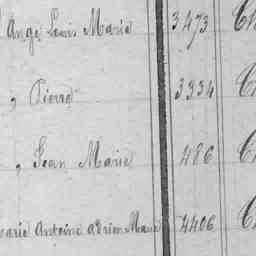 Ange Louis Marie 3473 Ch
, Pierre 3334
, Jean Marie 486 Ch
Marie Antoine adrien Marie 4406